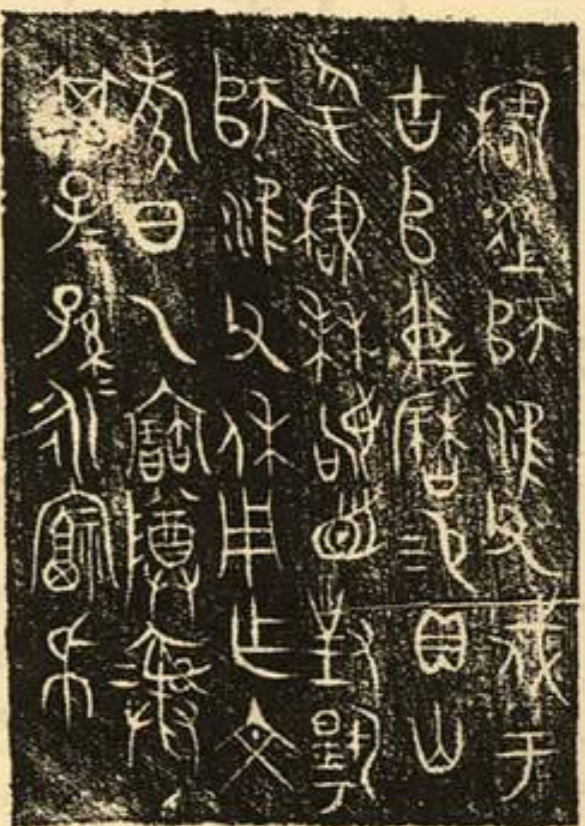 𥡴從師淮父戍于
古𠂤蔑曆易貝卅
寽𥡴拜稽首對揚
師淮父休用乍文
考日乙寶尊彝
其子=孫=永福